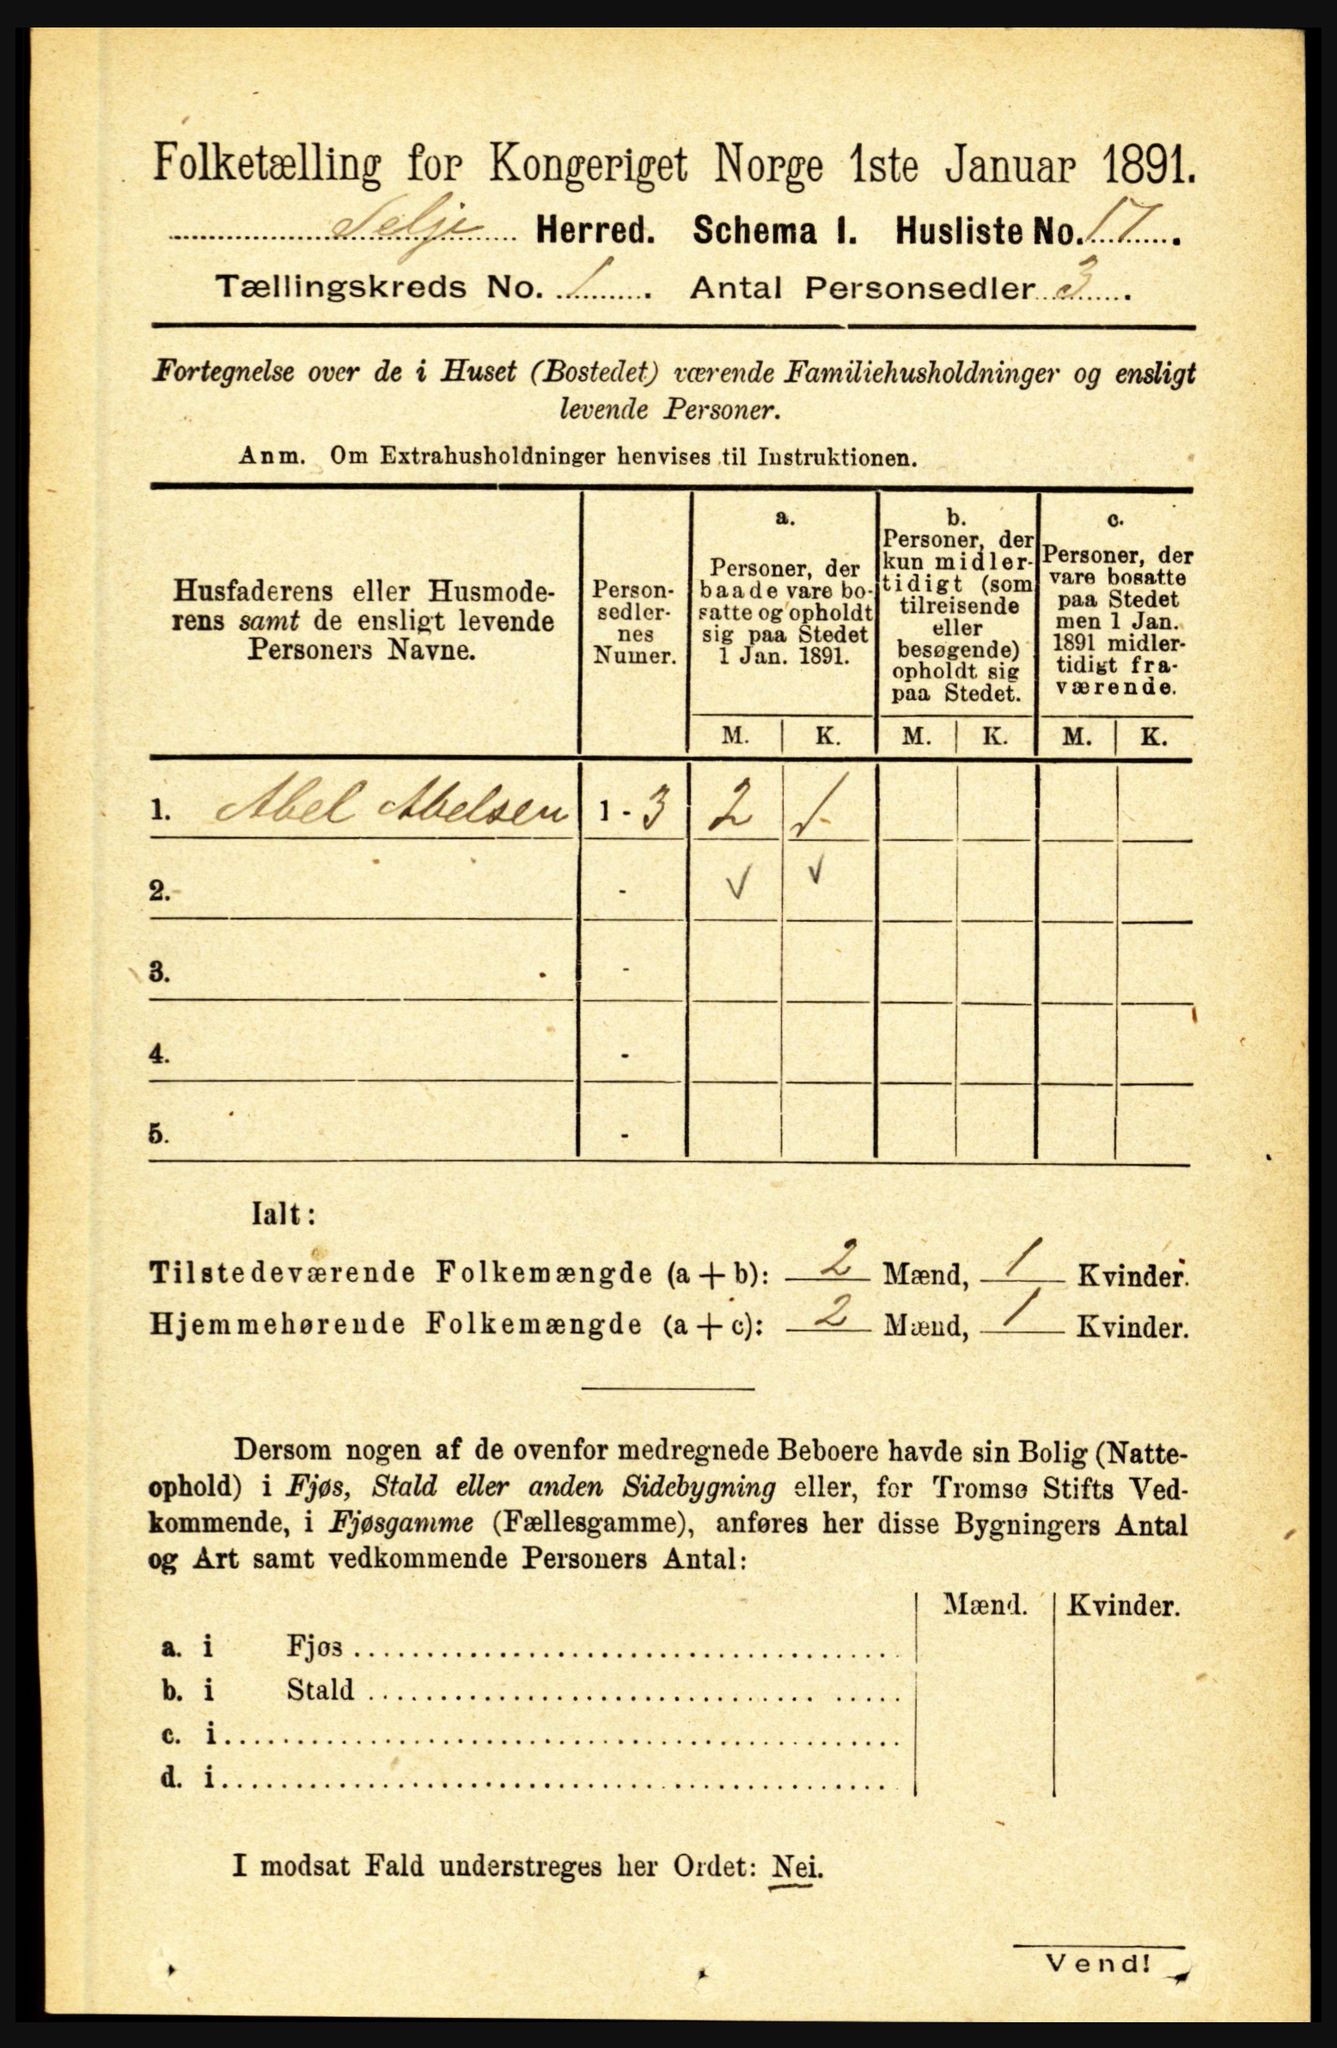 Folketælling for Kongeriget Norge 1ste Januar 1891.
Selje Herred. Schema I. Husliste No. 17.
Tællingskreds No. 1. Antal Personsedler 3.
Fortegnelse over de i Huset (Bostedet) værende Familiehusholdninger og ensligt
levende Personer.
Anm. Om Extrahusholdninger henvises til Instruktionen.
Husfaderens eller Husmode-
rens samt de ensligt levende
Personers Navne.
Person-
sedler-
nes
Numer.
a.
Personer, der
baade vare bo-
satte og opholdt
sig paa Stedet
1 Jan. 1891.
b.
Personer, der
kun midler-
tidigt (som
tilreisende
eller
besøgende)
opholdt sig
paa Stedet.
c.
Personer, der
vare bosatte
paa Stedet
men 1 Jan.
1891 midler-
tidigt fra-
værende.
M. K. M. K. M. K.
1. Abel Abelsen 1 - 3 2 1
2. - ✓ ✓
3. -
4. -
5. -
Ialt:
Tilstedeværende Folkemængde (a + b): 2 Mænd, 1 Kvinder.
Hjemmehørende Folkemængde (a + c): 2 Mænd, 1 Kvinder.
Dersom nogen af de ovenfor medregnede Beboere havde sin Bolig (Natte-
ophold) i Fjøs, Stald eller anden Sidebygning eller, for Tromsø Stifts Ved-
kommende, i Fjøsgamme (Fællesgamme), anføres her disse Bygningers Antal
og Art samt vedkommende Personers Antal:
Mænd. Kvinder.
a. i Fjøs
b. i Stald
c. i
d. i
I modsat Fald understreges her Ordet: Nei.
Vend!